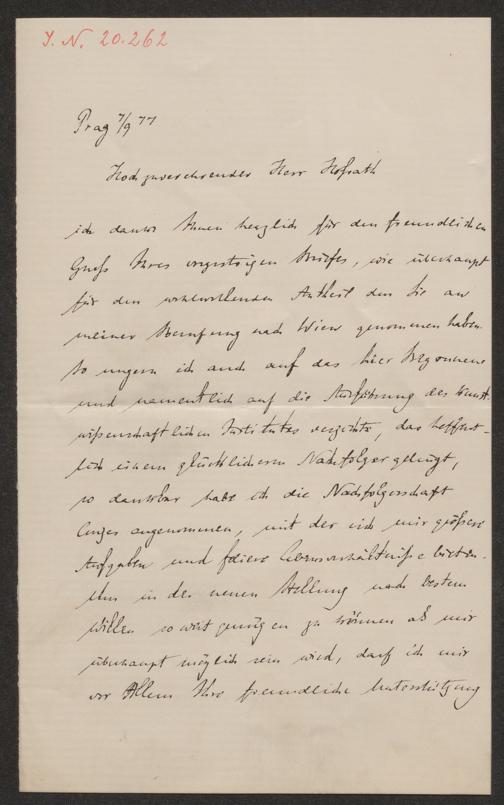 J. N. 20.262
Prag 7/9 77
Hochzuverehrender Herr Hofrath
ich danke Ihnen herzlich für den freundlichen
Gruß Ihres vorgestrigen Briefes, wie überhaupt
für den wohlwollenden Antheil den Sie an
meiner Berufung nach Wien genommen haben.
So ungern ich auch auf das hier Begonnene
und namentlich auf die Ausführung des kunst-
wißenschaftlichen Institutes verzichte, das hoffent-
lich einem glücklicheren Nachfolger gelingt,
so dankbar habe ich die Nachfolgerschaft
angenommen, mit der sich mir größere
Aufgaben und freiere Lebensverhältniße bieten.
Um in der neuen Stellung nach bestem
Willen so weit genügen zu können als mir
überhaupt möglich sein wird, darf ich mir
vor Allem Ihre freundliche Unterstützung